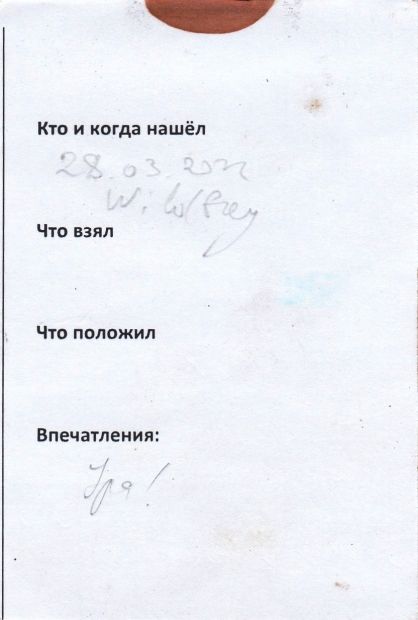 Кто и когда нашёл
28.03.2022
Что взял
Что положил
Впечатления:
Ура!